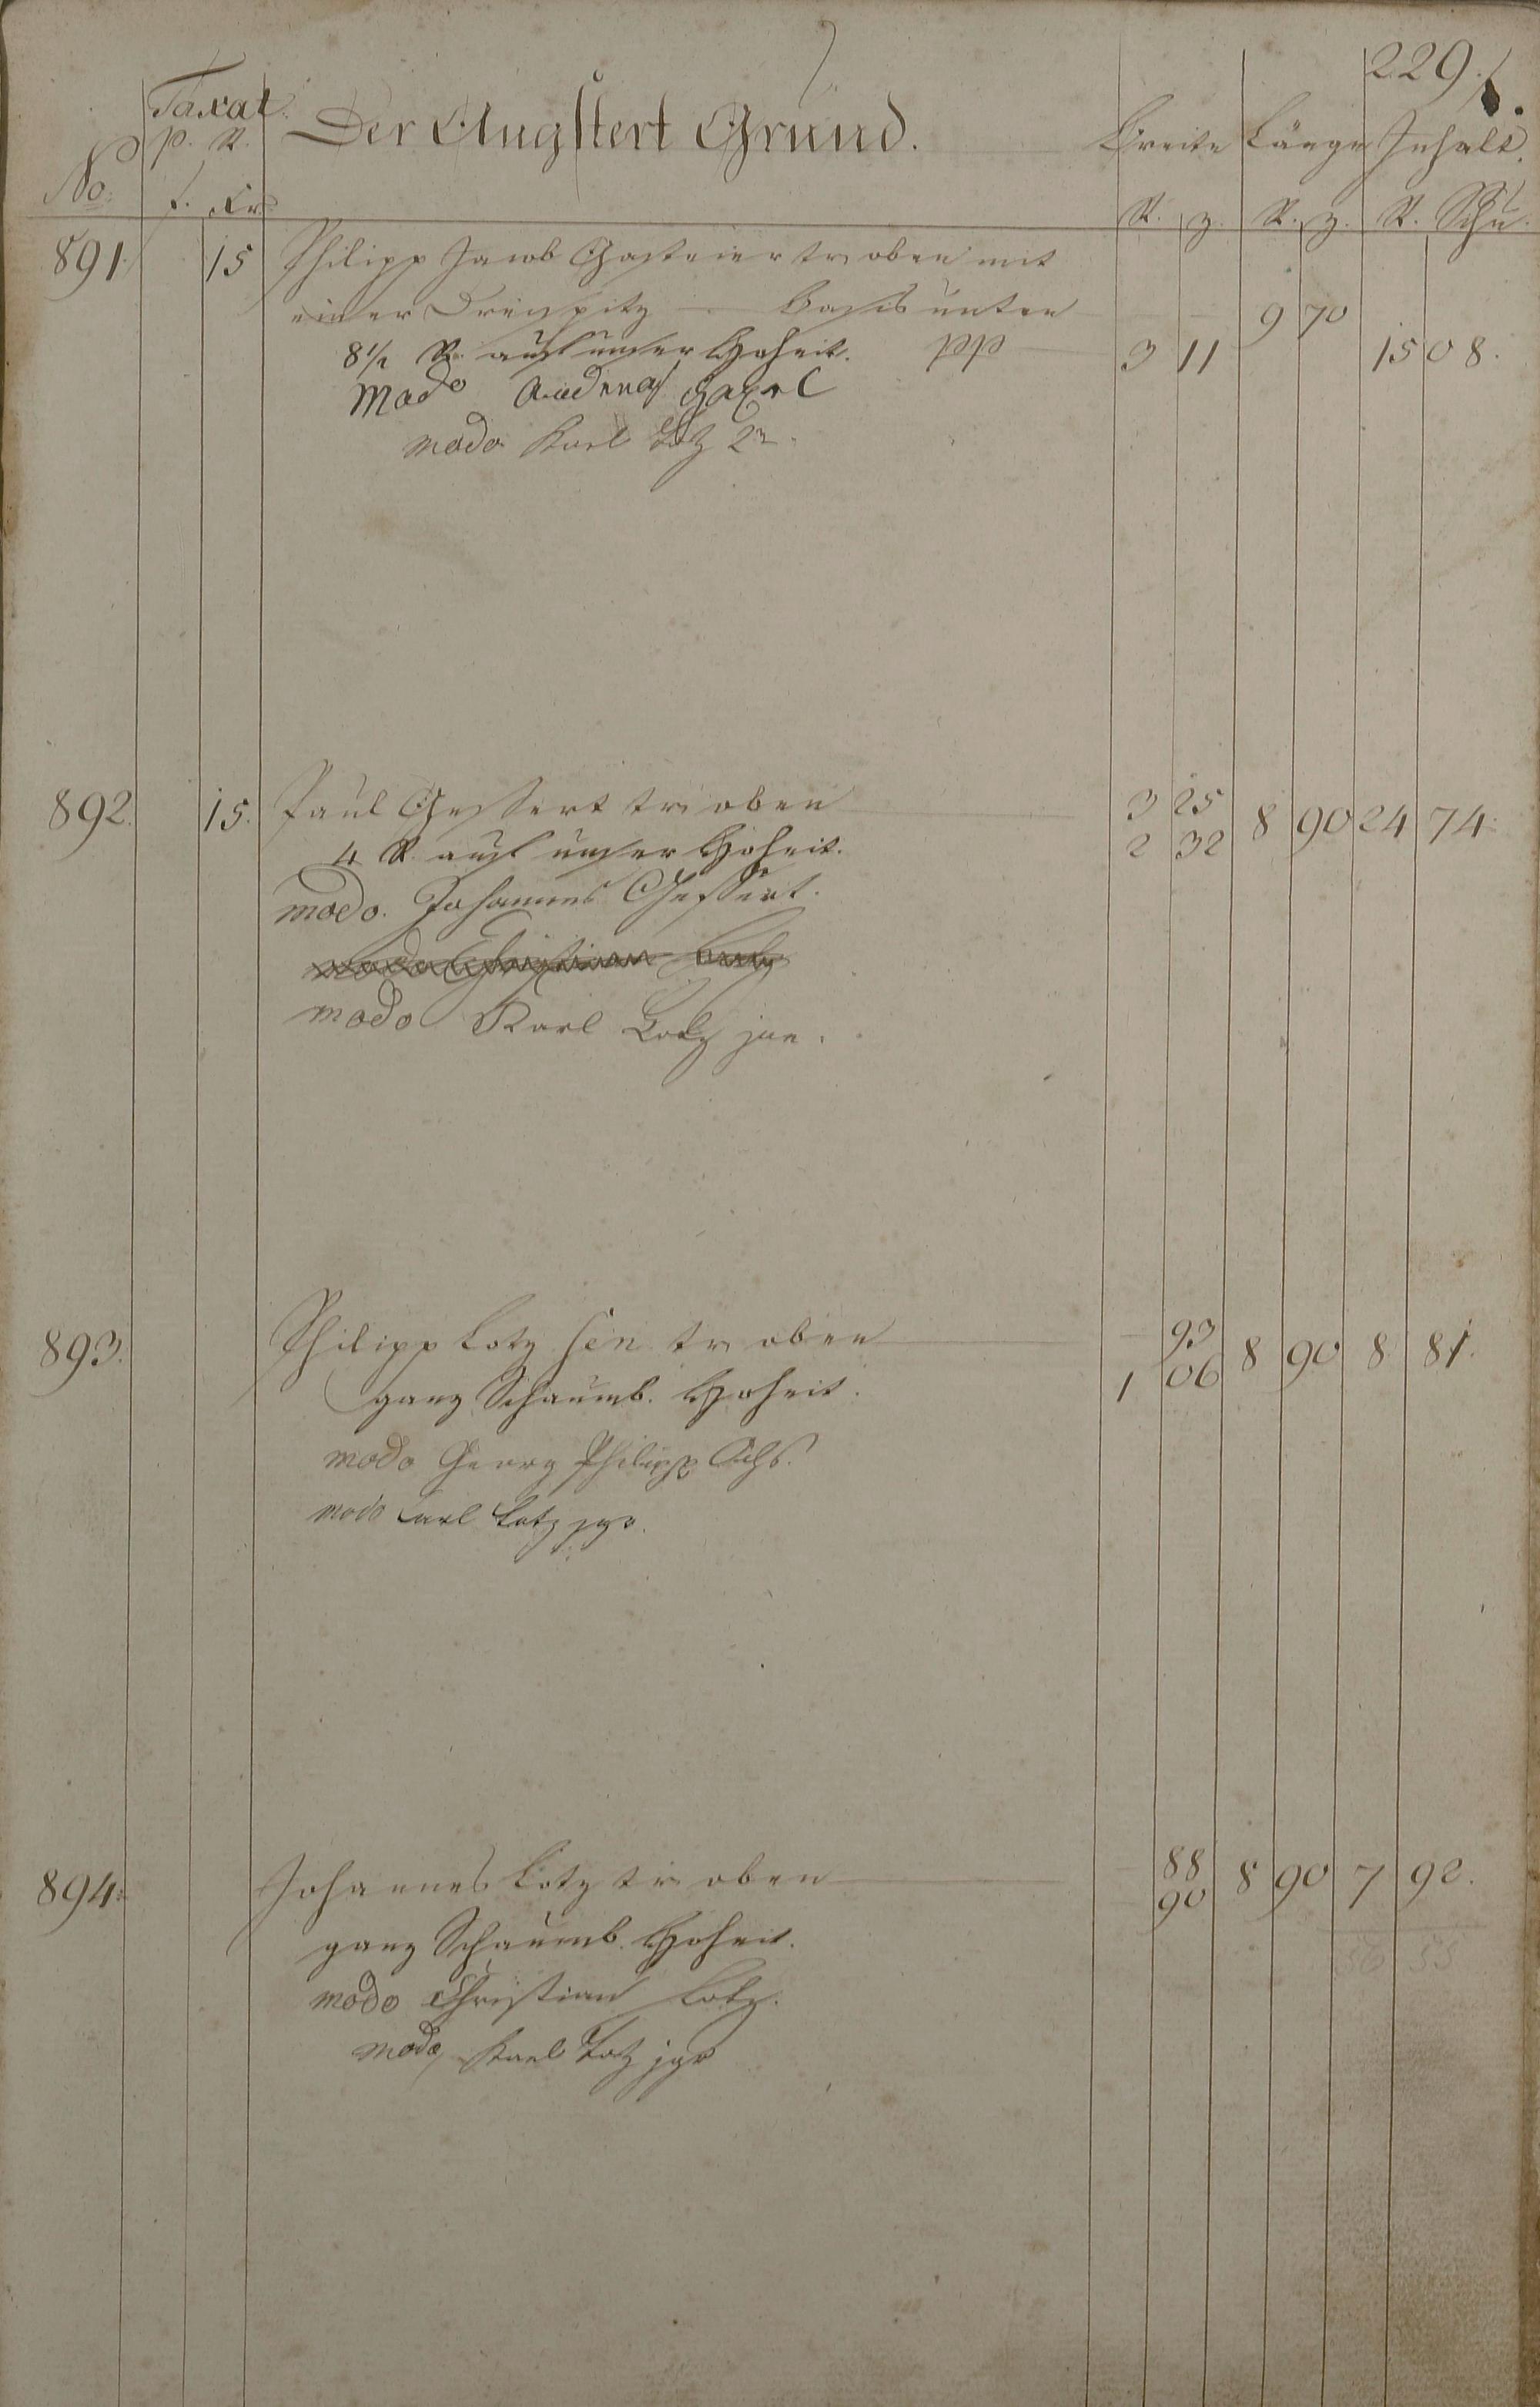 229.
Taxat. Der Augstert Grund. Breite Länge Inhalt.
p. R.
No. f. Xr. R. z. R. z. R. Schu.
891. 15 Philipp Jacob Gasteier tr. oben mit
einer Dreyspitz — Basis unten 9 70
8½ R. auf unser Hoheit. pp 3 11 15 08.
Modo Andreas
modo Karl Lotz 2r.
892. 15. Paul Gessert tr. oben 3 25 8 90 24 74.
4 R. auf unser Hoheit. 2 32
modo. Johannes Gessert.
modo Christian Lotz
modo Karl Lotz jun.
893. Philipp Lotz sen. tr. oben — 93 8 90 8 81.
ganz Schaumb. Hoheit. 1 06
modo Georg Philipp
modo Carl Lotz jgr.
894. Johannes Lotz tr. oben — 88 8 90 7 92.
90
ganz Schaumb. Hoheit.
56 55
modo Christian Lotz.
modo, Karl Lotz jgr